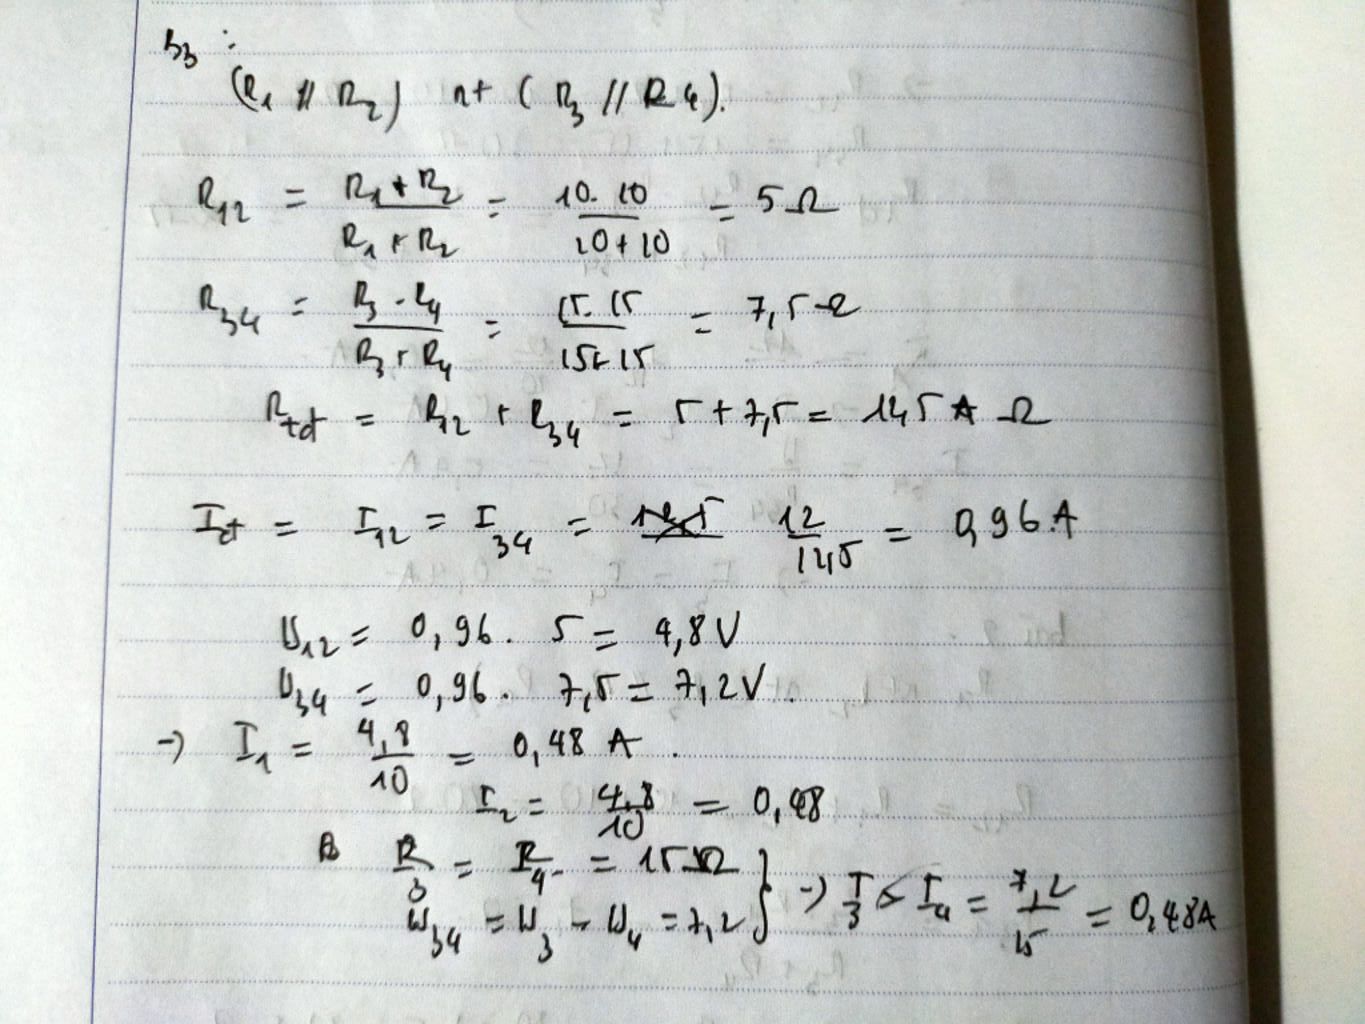 b3 :
(R1 // R2) nt (R3 // R4).
R12 = (R1 + R2)/(R1 + R2) = (10. 10)/(10+10) = 5Ω
R34 = (R3 . R4)/(R3 + R4) = (15. 15)/(15+15) = 7,5Ω
Rtđ = R12 + R34 = 5 + 7,5 = 12,5 Ω
Iđ = I12 = I34 = 12/12,5 = 0,96.A
U12 = 0,96. 5 = 4,8V
U34 = 0,96. 7,5 = 7,2V.
-> I1 = 4,8/10 = 0,48 A.
I2 = 4,8/10 = 0,48
R3 = R4 = 15Ω
U34 = U3 = U4 = 7,2 } -> I3 = I4 = 7,2/15 = 0,48A